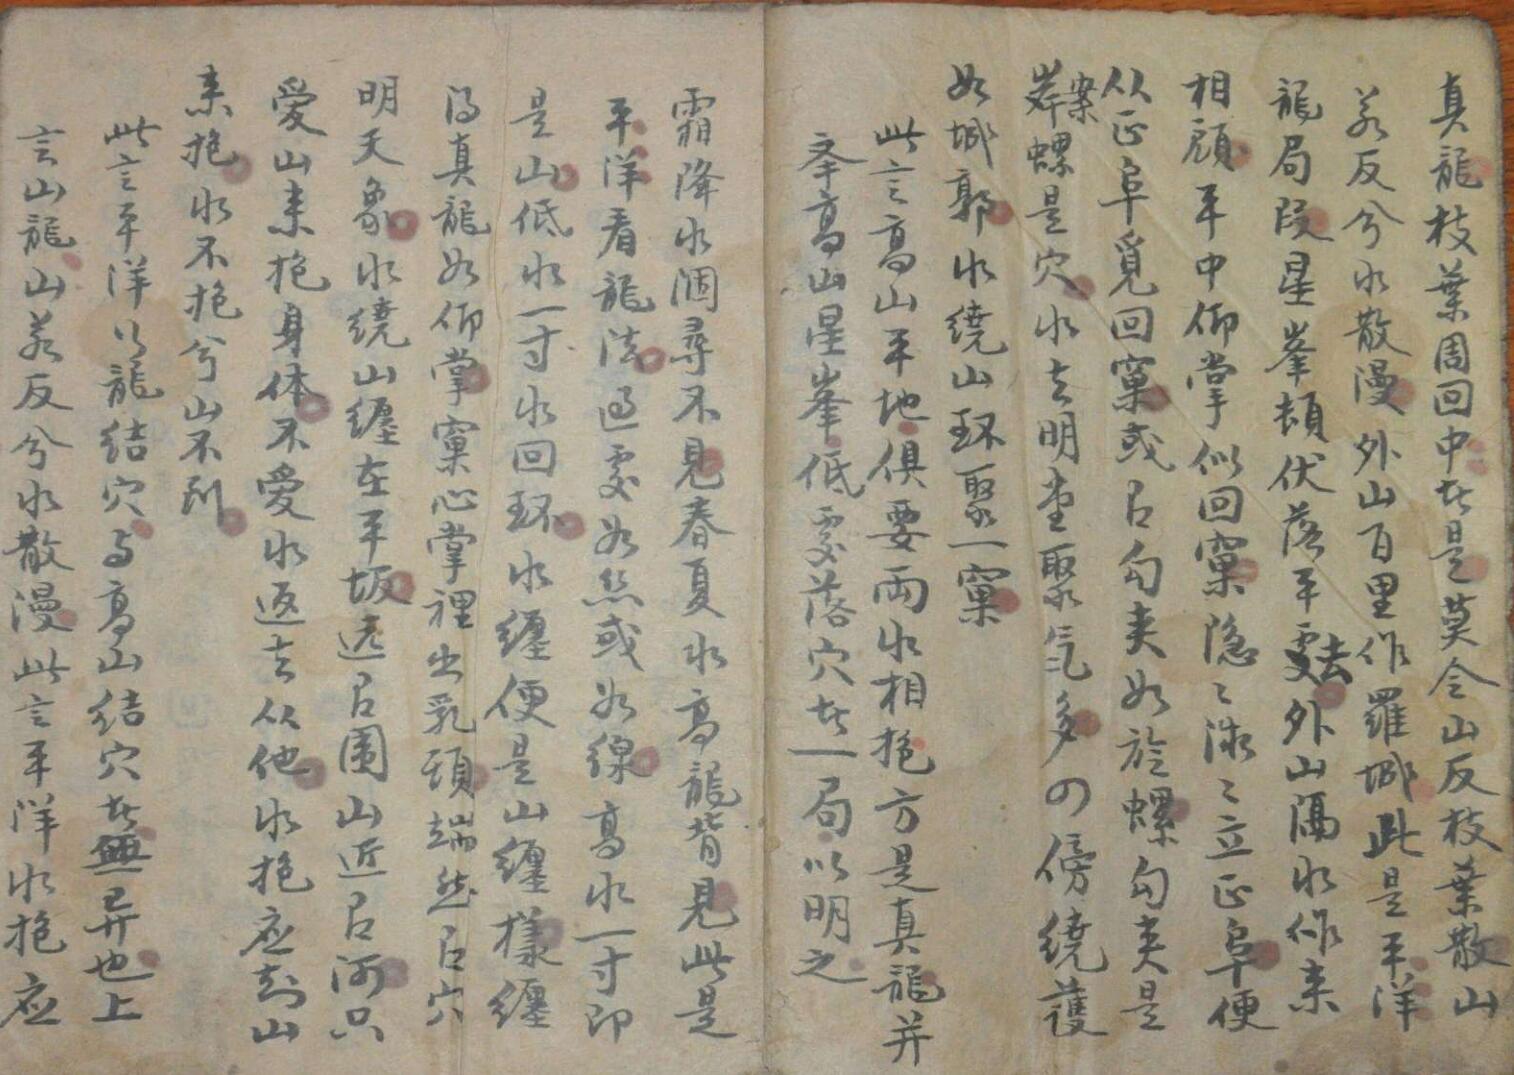 真龍枝葉周回中者是莫令山反枝葉散山
若反兮水散漫外山百里作羅城此是平洋
龍局段星峯頓伏落平處去外山隔水作来
相顧平中仰掌似回窠隐〻微〻立正阜便
从正阜覓回窠或有勾夹如於螺勾夹是
案螺是穴水去明堂聚气多四傍繞護
如城郭水繞山环聚一窠
此言高山平地俱要両水相抱方是真龍并
峯高山星峯低處落穴者一局以明之
霜降水涸尋不見春夏水高龍背見此是
平洋看龍法過處如丝或如線高水一寸即
是山低水一寸水回环水纏便是山纏樣纏
得真龍如仰掌窠心掌裡出乳頭端然有穴
明天象水繞山纏在平坂远有圍山近有河只
愛山来抱身体不愛水返去从他水抱应知山
来抱水不抱兮山不到
此言平洋以龍結穴与高山結穴者無异也上
言山龍山若反兮水散漫此言平洋水抱应